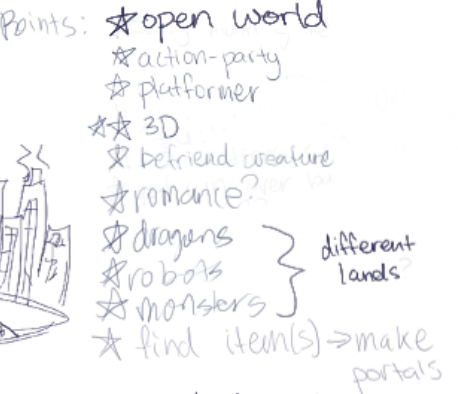 Points: ☆ open world
☆ action-party
☆ platformer
☆☆ 3D
☆ befriend creature
☆ romance?
☆ dragons
☆ robots
☆ monsters
different
lands?
☆ find item(s) → make
portals